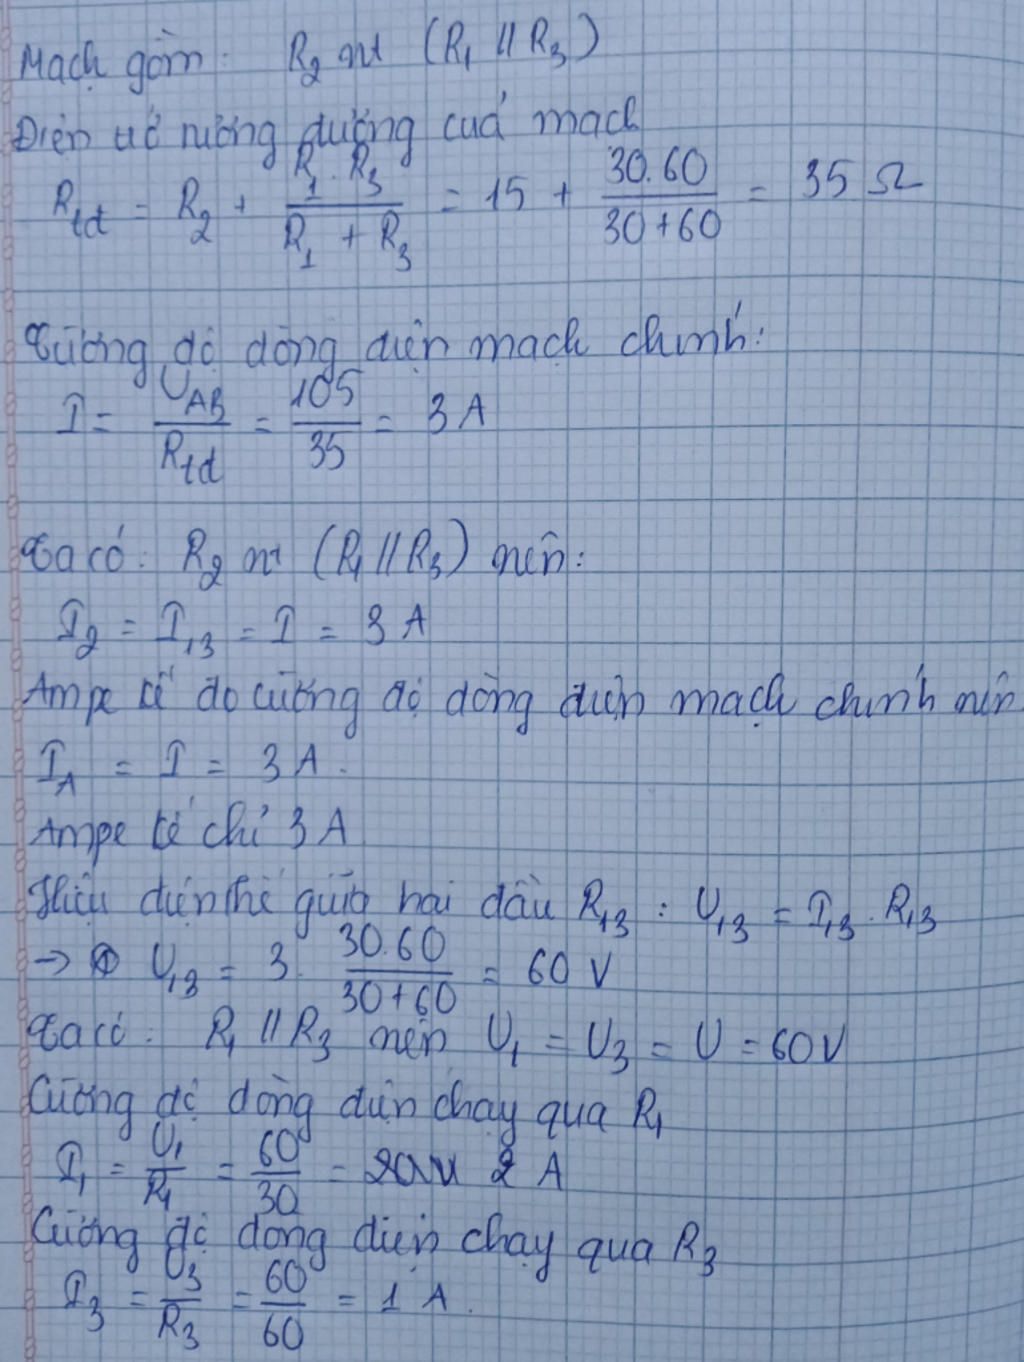 Mạch gồm: R₂ nt (R₁ // R₃)
Điện trở tương đương của mạch
R_tđ = R₂ + (R₁ . R₃)/(R₁ + R₃) = 15 + (30.60)/(30+60) = 35 Ω
Cường độ dòng điện mạch chính:
I = U_AB/R_tđ = 105/35 = 3 A
Ta có: R₂ nt (R₁ // R₃) nên:
I₂ = I₁₃ = I = 3 A
Ampe kế đo cường độ dòng điện mạch chính nên
I_A = I = 3 A.
Ampe kế chỉ 3 A
Hiệu điện thế giữa hai đầu R₁₃ : U₁₃ = I₁₃ . R₁₃
→ U₁₃ = 3. (30.60)/(30+60) = 60 V
Ta có: R₁ // R₃ nên U₁ = U₃ = U = 60V
Cường độ dòng điện chạy qua R₁
I₁ = U₁/R₁ = 60/30 = 2 A
Cường độ dòng điện chạy qua R₃
I₃ = U₃/R₃ = 60/60 = 1 A.